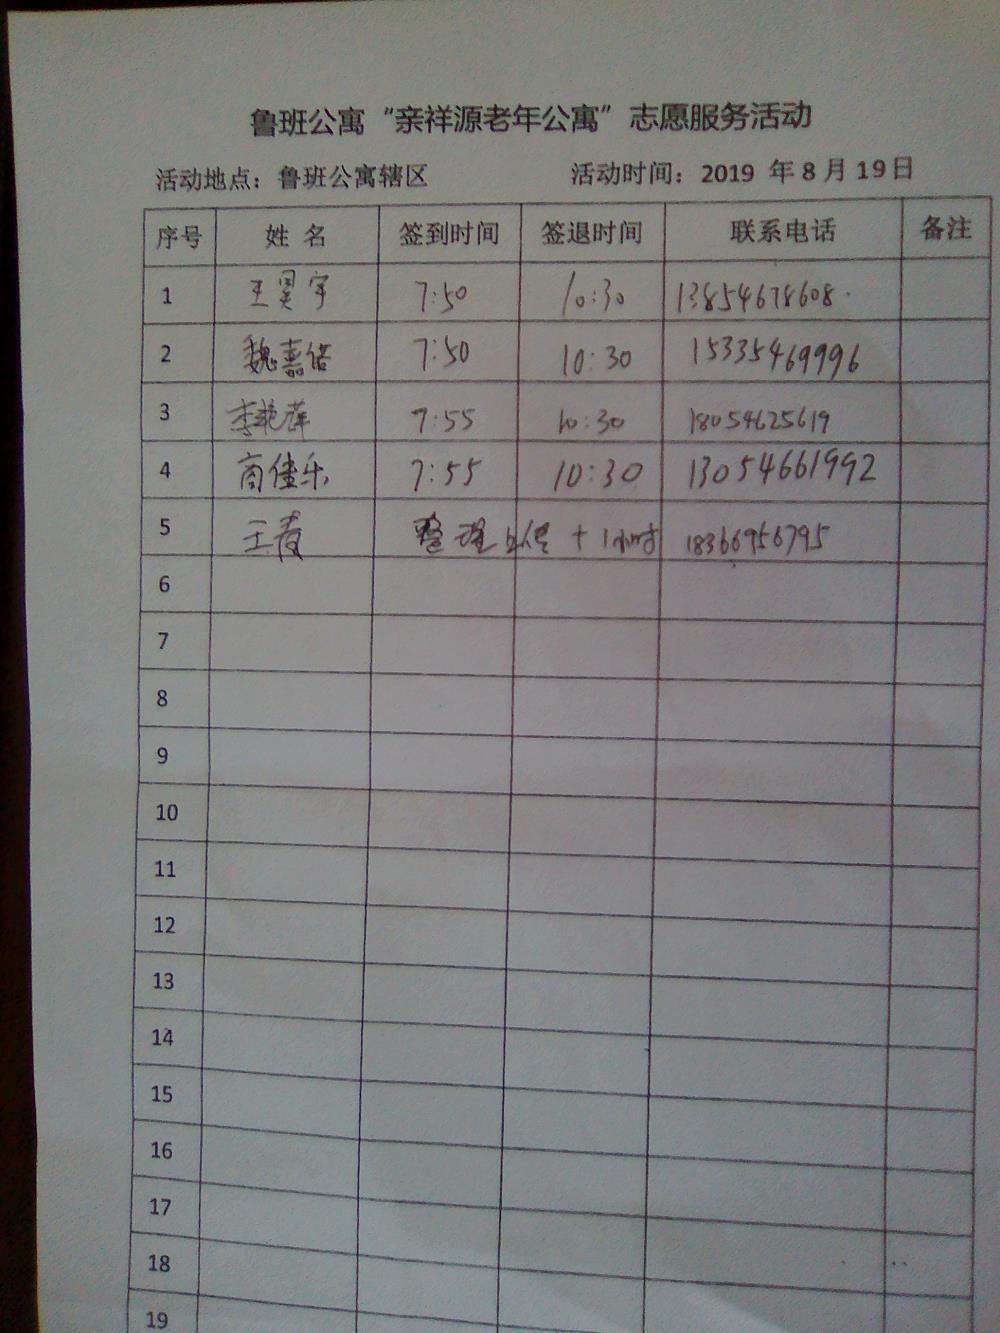 鲁班公寓“亲祥源老年公寓”志愿服务活动
活动地点：鲁班公寓辖区 活动时间：2019 年 8 月 19 日
序号 姓 名 签到时间 签退时间 联系电话 备注
1 王昊宇 7:50 10:30 13854678608
2 魏嘉信 7:50 10:30 15335469996
3 李艳萍 7:55 10:30 18054625619
4 商佳乐 7:55 10:30 13054661992
5 王 整理上传 + 1小时 18366956795
6
7
8
9
10
11
12
13
14
15
16
17
18
19